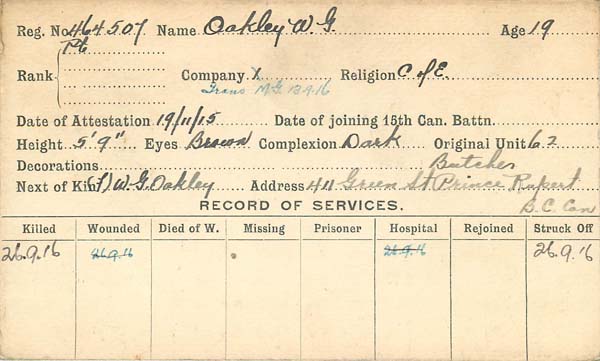 Reg. No. 464507 Name Oakley W. G. Age 19
Rank Pte Company X Religion C of E.
Trans M.G. 13.9.16
Date of Attestation 19/11/15 Date of joining 15th Can. Battn.
Height 5' 9" Eyes Brown Complexion Dark Original Unit 62
Decorations Butcher
Next of Kin (F) W. G. Oakley Address 411 Green St Prince Rupert
B.C. Can
RECORD OF SERVICES.
Killed Wounded Died of W. Missing Prisoner Hospital Rejoined Struck Off
26.9.16 26.9.16 26.9.16 26.9.16